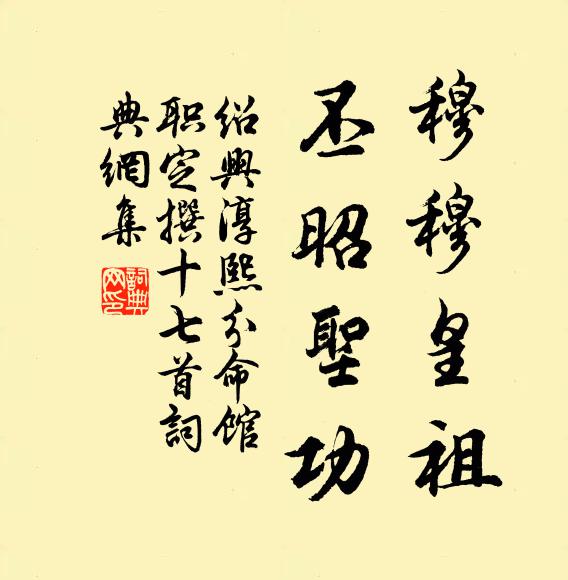 穆穆皇祖
丕昭聖功
绍興淳熙分命馆
职定撰十七首詞
典網集
詞典网印